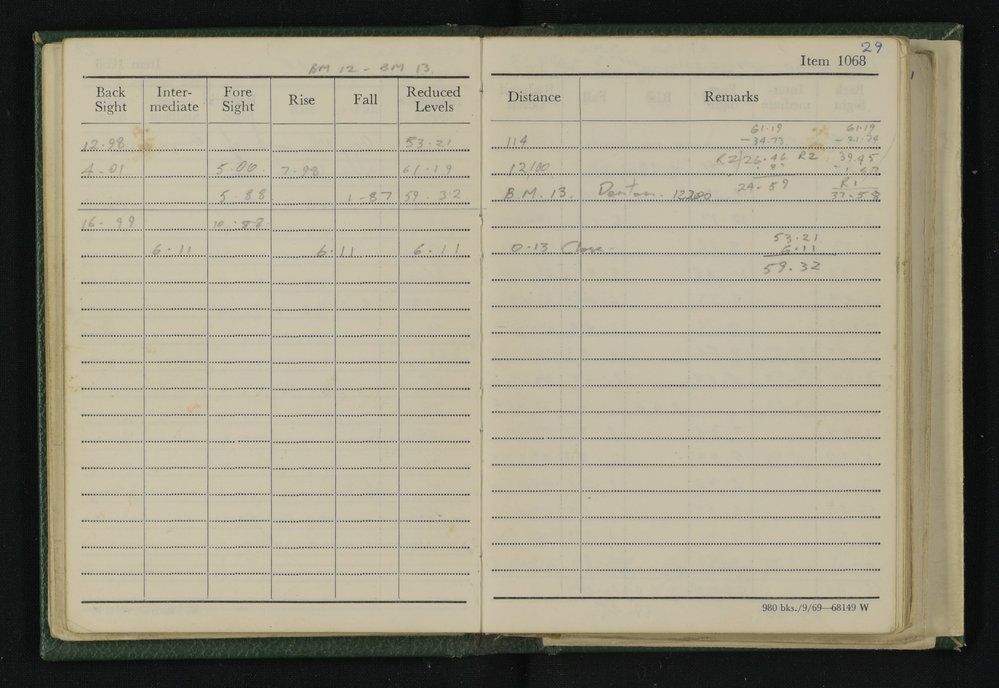 29
Item 1068
BM 12 - BM 13
Back Sight Inter-mediate Fore Sight Rise Fall Reduced Levels Distance Remarks
61.19 61.19
12.98 53.21 114 -34.73
4.01 5.00 7.98 61.19 12/00 R2 26.46 R2 39.45
5.88 1.87 59.32 B.M. 13. 24.59 R1
37.58
16.99 10.88
53.21
6.11 6.11 6.11 0.13 Close 6.11
59.32
980 bks./9/69—68149 W